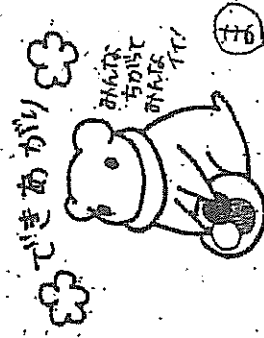 できあがり
みんな
ちがって
みんな
イイ!